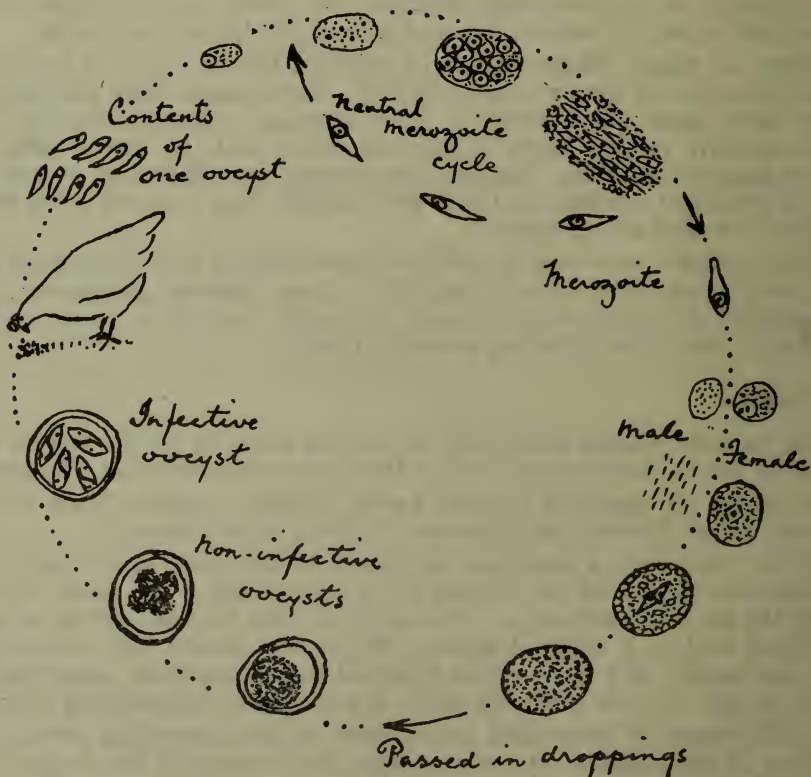 Contents
of
one oocyst
Neutral
merozoite
cycle
Merozoite
male
Female
Infective
oocyst
non-infective
oocysts
Passed in droppings